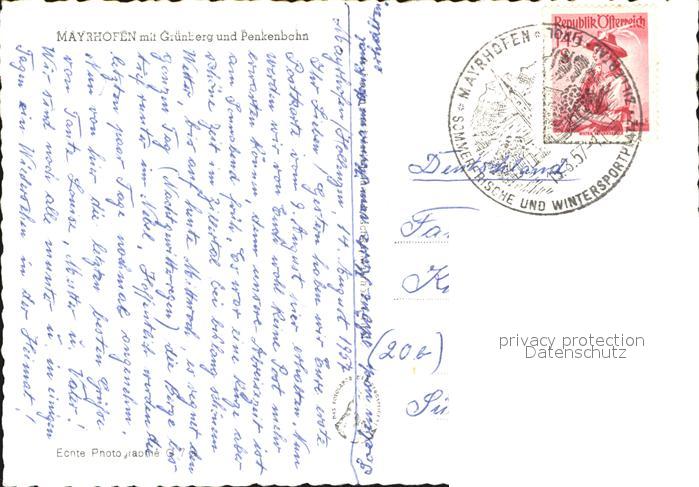 MAYRHOFEN mit Grünberg und Penkenbahn
Mayrhofen, 14. August 1957
Ihr Lieben! Gestern haben wir Eure erste
Postkarte vom 9. August hier erhalten. Nun
werden wir von Euch wohl keine Post mehr
erwarten können, denn unsere Abreisezeit ist
am Sonnabend früh. Es war eine kurze aber
schöne Zeit im Zillertal bei bislang schönem
Wetter, bis auf heute Mittwoch, es regnet den
ganzen Tag (Nachtgewitterregen) die Berge bis
tief runter im Nebel. Hoffentlich werden die
letzten paar Tage nochmal angenehm.
Nun von hier die letzten besten Grüße
von Tante Louise, Mutter u. Vater!
Wir sind noch alle munter u. in einigen
Tagen ein Wiedersehen in der Heimat!
Echte Photographie
MAYRHOFEN
ZILLERTAL, TIROL
SOMMERFRISCHE UND WINTERSPORTPLATZ
15.8.57
Republik Österreich
Deutschland
Fa
K
(20a)
Sü
privacy protection
Datenschutz